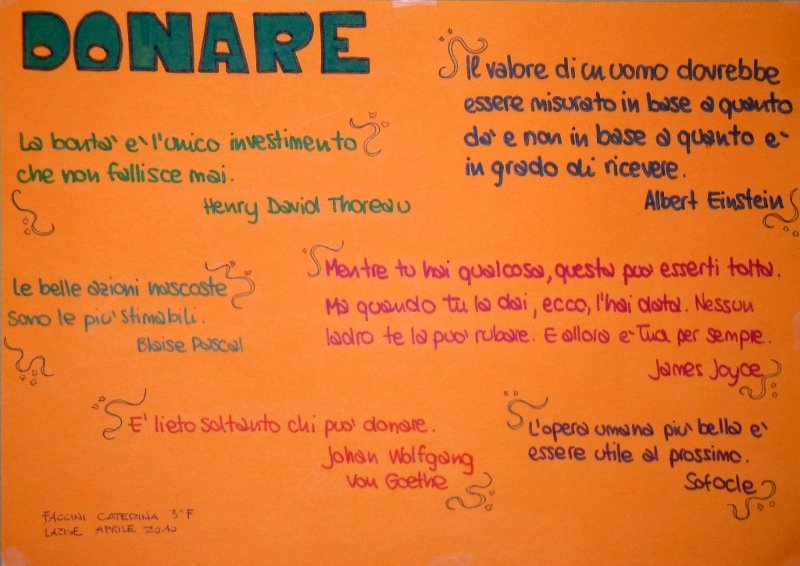 DONARE
La bonta' e' l'unico investimento
che non fallisce mai.
Henry David Thoreau
Il valore di un uomo dovrebbe
essere misurato in base a quanto
da' e non in base a quanto e'
in grado di ricevere.
Albert Einstein
Le belle azioni nascoste
sono le piu' stimabili.
Blaise Pascal
Mentre tu hai qualcosa, questa puo' esserti tolta.
Ma quando tu la dai, ecco, l'hai data. Nessun
ladro te la puo' rubare. E allora e' Tua per sempre.
James Joyce
E' lieto soltanto chi puo' donare.
Johan Wolfgang
von Goethe
L'opera umana piu' bella e'
essere utile al prossimo.
Sofocle
FACCINI CATERINA 3^F
LAZISE APRILE 2010